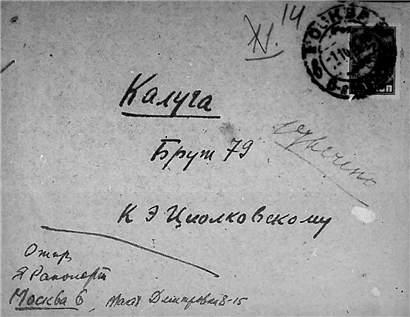 XI. 14
МОСКВА
Калуга
Брут 79
отвечено
К Э Циолковскому
Отпр.
Я Рапопорт
Москва 6, Малая Дмитровка 8-15